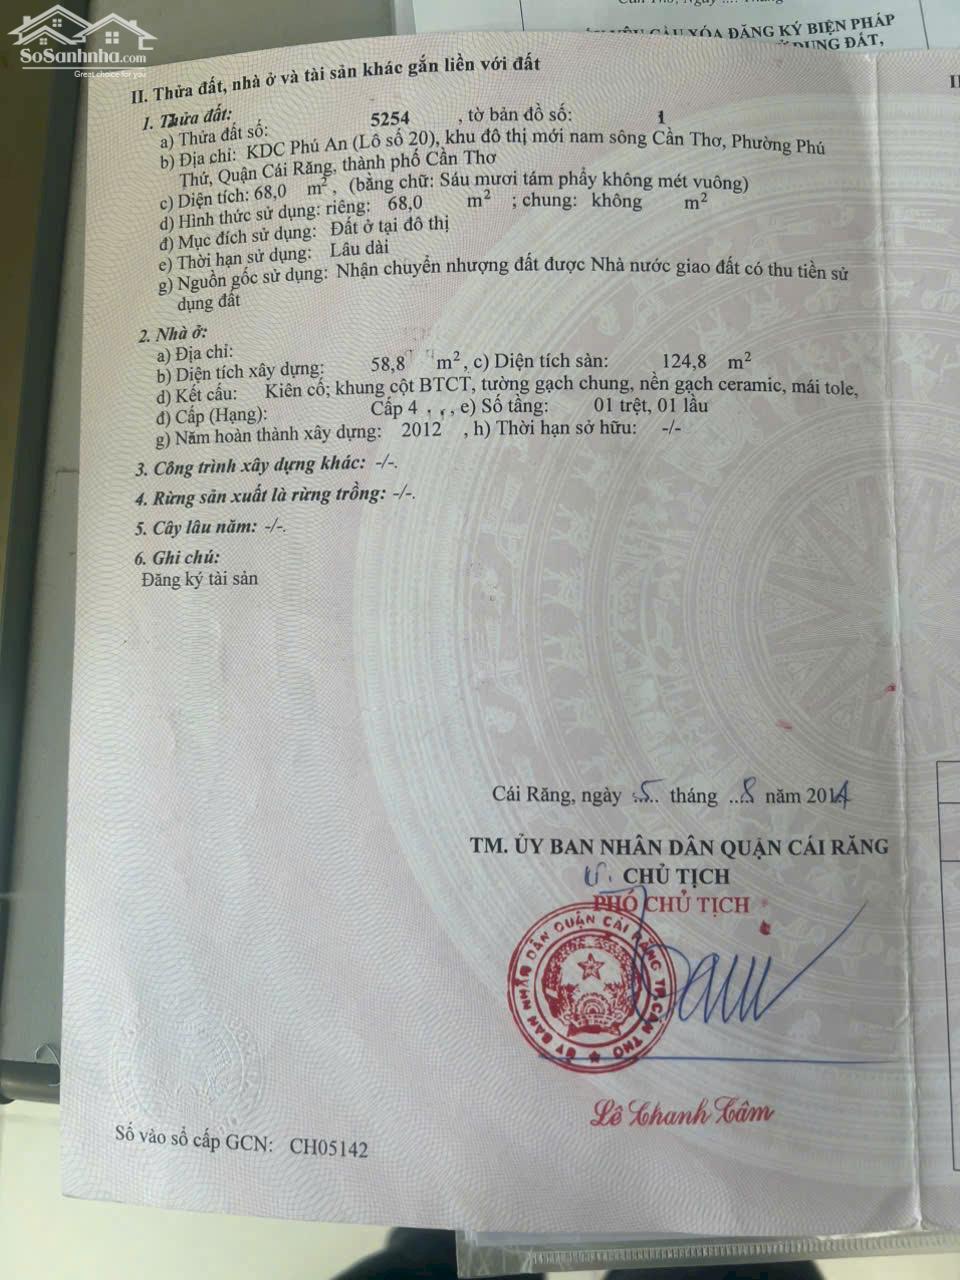 SoSanhnha.com
Great choice for you
Cần Thơ, Ngày .... Tháng
YÊU CẦU XÓA ĐĂNG KÝ BIỆN PHÁP
DỤNG ĐẤT,
II. Thửa đất, nhà ở và tài sản khác gắn liền với đất
1. Thửa đất:
a) Thửa đất số: 5254 , tờ bản đồ số: 1
b) Địa chỉ: KDC Phú An (Lô số 20), khu đô thị mới nam sông Cần Thơ, Phường Phú
Thứ, Quận Cái Răng, thành phố Cần Thơ
c) Diện tích: 68,0 m², (bằng chữ: Sáu mươi tám phẩy không mét vuông)
d) Hình thức sử dụng: riêng: 68,0 m² ; chung: không m²
đ) Mục đích sử dụng: Đất ở tại đô thị
e) Thời hạn sử dụng: Lâu dài
g) Nguồn gốc sử dụng: Nhận chuyển nhượng đất được Nhà nước giao đất có thu tiền sử
dụng đất
2. Nhà ở:
a) Địa chỉ:
b) Diện tích xây dựng: 58,8 m², c) Diện tích sàn: 124,8 m²
d) Kết cấu: Kiên cố; khung cột BTCT, tường gạch chung, nền gạch ceramic, mái tole,
đ) Cấp (Hạng): Cấp 4 , , , e) Số tầng: 01 trệt, 01 lầu
g) Năm hoàn thành xây dựng: 2012 , h) Thời hạn sở hữu: -/-
3. Công trình xây dựng khác: -/-.
4. Rừng sản xuất là rừng trồng: -/-.
5. Cây lâu năm: -/-.
6. Ghi chú:
Đăng ký tài sản
Cái Răng, ngày 5 tháng 8 năm 2014
TM. ỦY BAN NHÂN DÂN QUẬN CÁI RĂNG
CHỦ TỊCH
PHÓ CHỦ TỊCH
ỦY BAN NHÂN DÂN QUẬN CÁI RĂNG TP. CẦN THƠ
Lê Thanh Tâm
Số vào sổ cấp GCN: CH05142